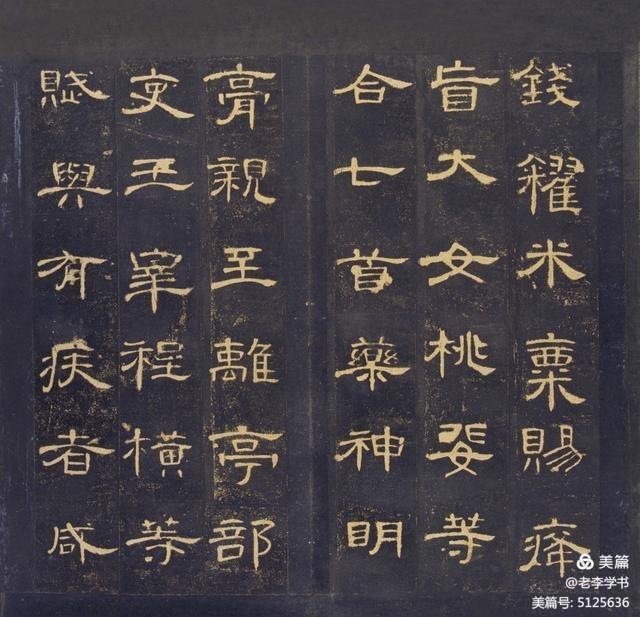 錢糴米粟賜𤸇
盲大女桃婓等
合七首藥神明
膏親至離亭部
吏王宰程橫等
賦與有疾者咸
美篇
@老李学书
美篇号: 5125636